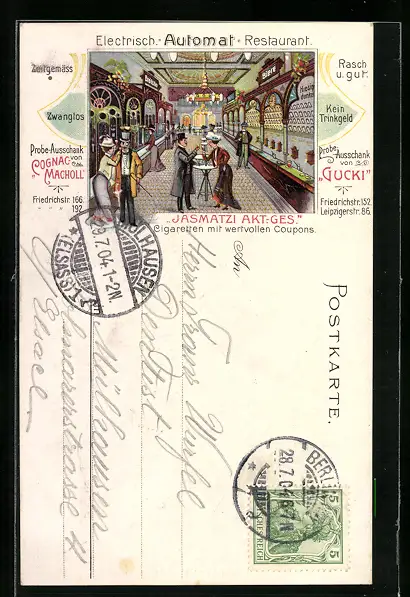 Electrisch. Automat Restaurant.
Zeitgemäss
Rasch
u. gut.
Zwanglos
Kein
Trinkgeld
Biere
Probe-Ausschank
von
COGNAC
MACHOLL
Friedrichstr. 166.
192
Probe-Ausschank
von
"GUCKI"
Friedrichstr. 152
Leipzigerstr. 86.
"JASMATZI AKT.-GES."
Cigaretten mit wertvollen Coupons.
POSTKARTE.
An
Herrn Franz
Dentist
Mülhausen
Elsass
MÜLHAUSEN
.7.04.1-2N.
(ELSASS)
BERLIN
28.7.04
5
5
REICH